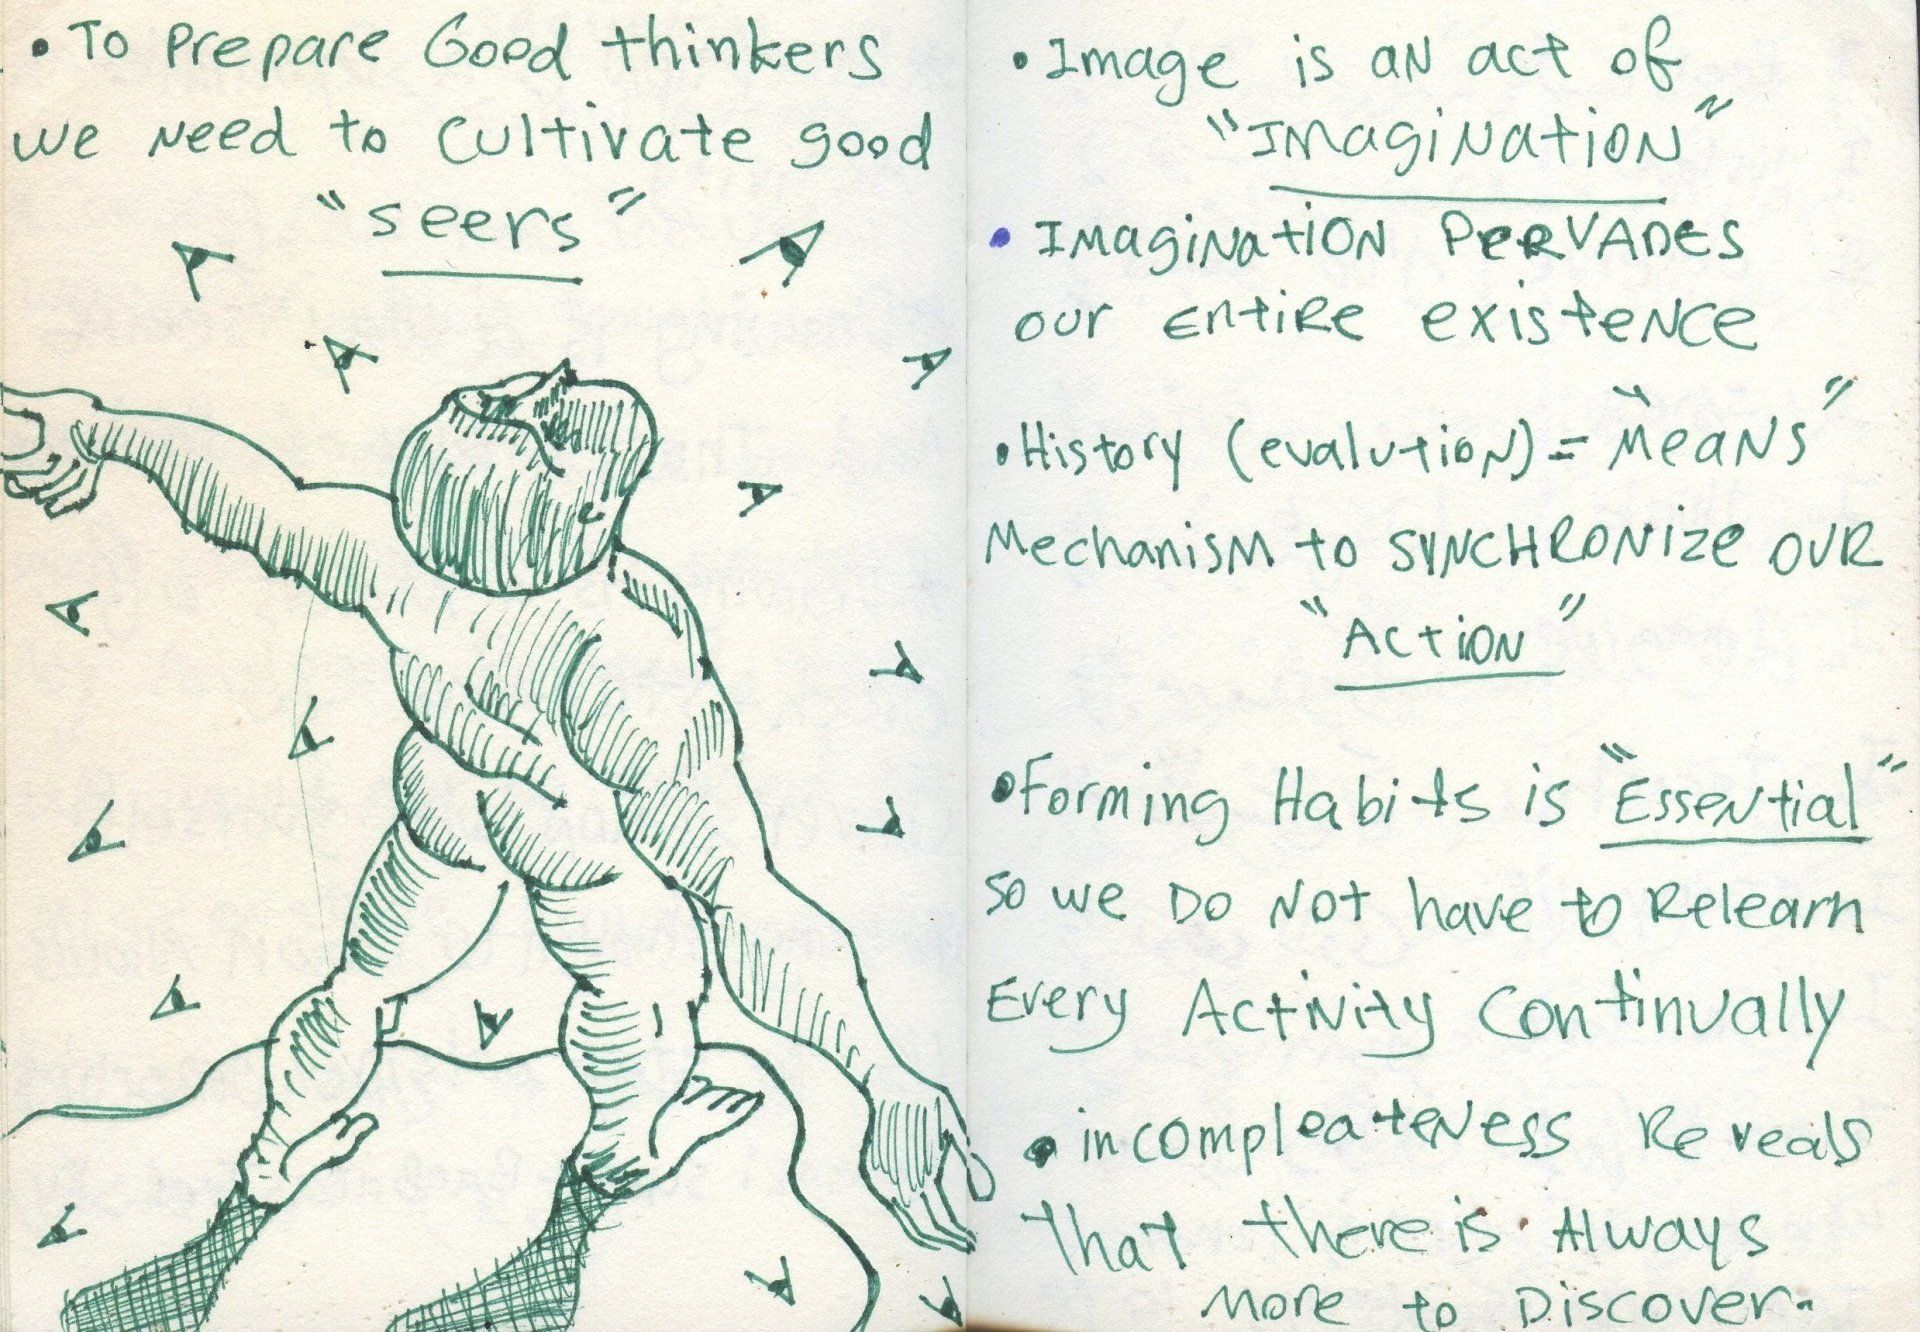 • To Prepare Good thinkers
we need to cultivate good
"seers"
• Image is an act of
"Imagination"
• Imagination PERVADES
our entire existence
• History (evalution) = "Means"
Mechanism to SYNCHRONize OUR
"Action"
• Forming Habits is "Essential"
so we Do Not have to Relearn
Every Activity Continually
• incompleateness Reveals
that there is Always
more to Discover.